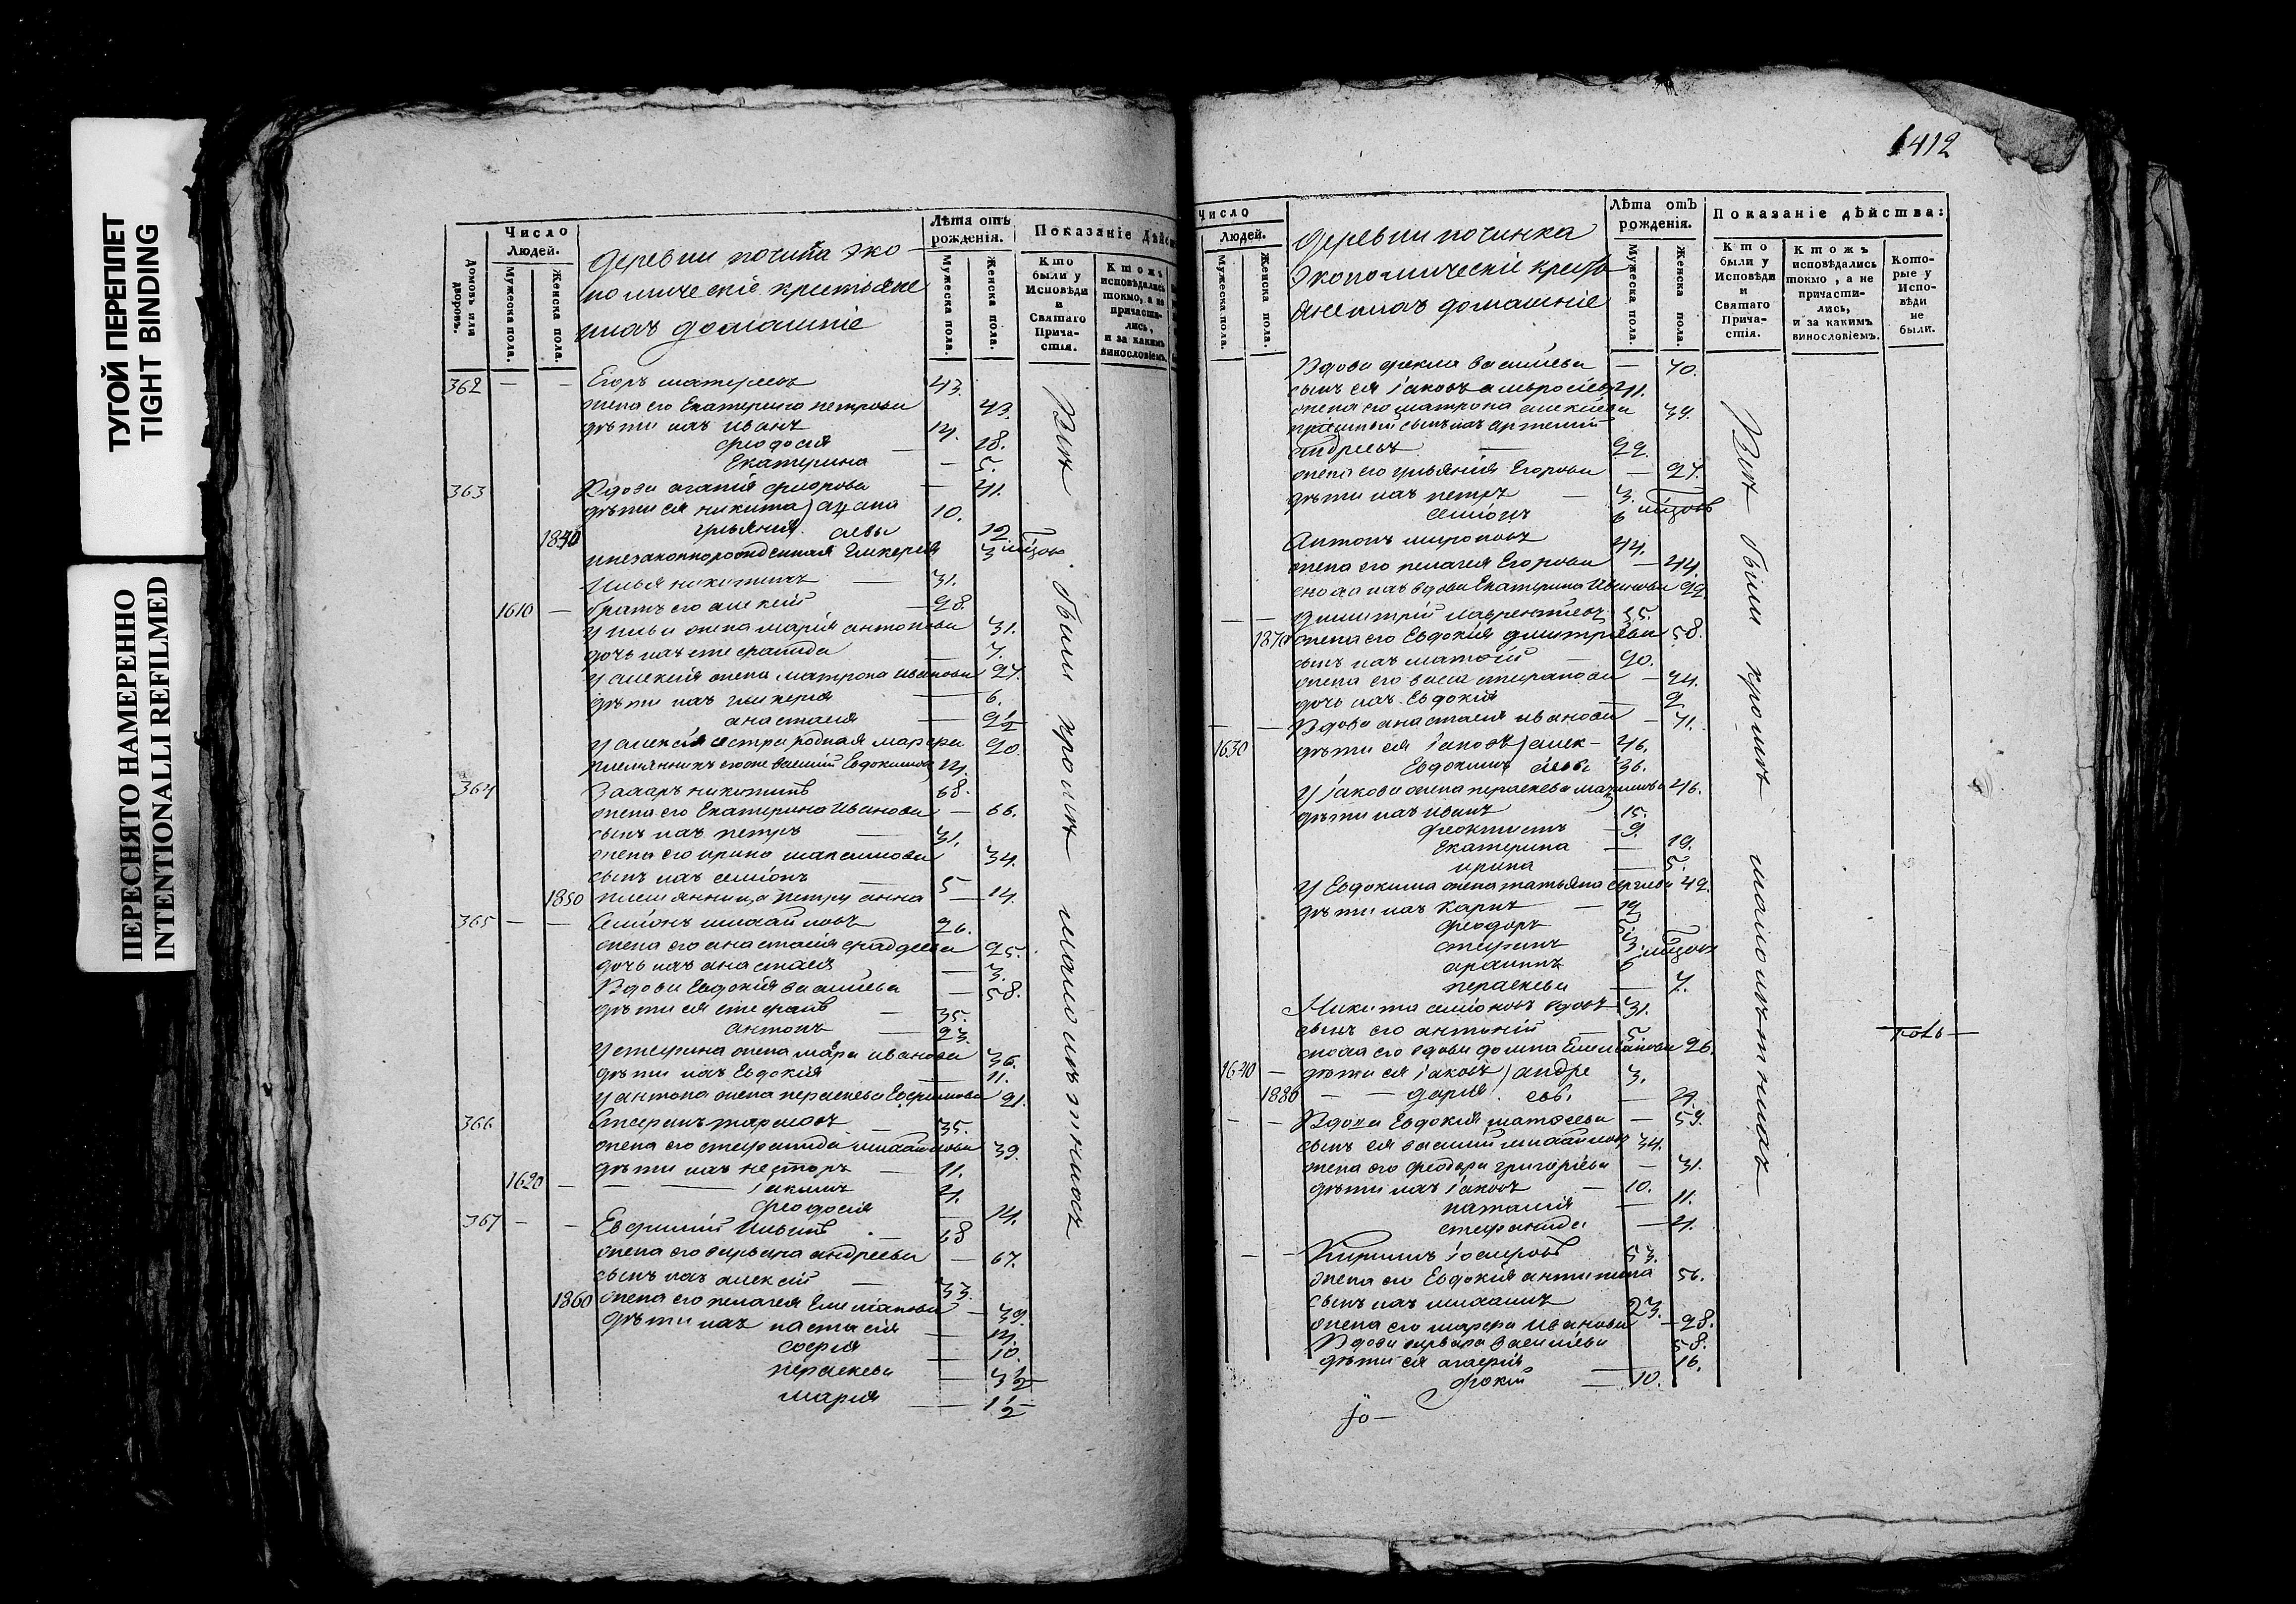 ТУГОЙ ПЕРЕПЛЕТ
TIGHT BINDING
ПЕРЕСНЯТО НАМЕРЕННО
INTENTIONALLI REFILMED
Домовъ или дворовъ.
Число
Людей.
Мужеска пола.
Женска пола.
деревни почин̾ка эко-
номическіе кр҃стьяне
ихъ домашніе
Лѣта отъ
рожденія.
Мужеска пола.
Женска пола.
Показаніе дѣйс
Кто были у Исповѣди и Святаго Причастія.
Ктожъ исповѣдались токмо, а не причастились, и за какимъ винословіемъ.
Всѣ были кромѣ малолѣтныхъ
362 — — Егоръ матфеевъ 43.
жена его Екатерина петрова 43.
дѣти ихъ иванъ 14.
феодосія — 18.
Екатерина — 5.
363 Вдова агапія феодорова — 41.
дѣти ея никита 10.
1840 ульянія 12
незаконнорожденная Гликерія 3 мцовъ.
Илья никитинъ — 31.
1610 — братъ его алексій — 28.
у ильи жена марія антонова 31.
дочь ихъ стефанида — 7.
у алексія жена матрона иванова 27.
дѣти ихъ гликерія — 6.
анастасія — 2½
у алексія сестра родная марфа 20.
племянникъ его же василій Евдокимовъ 14.
364 Захаръ никитинъ 68.
жена его Екатерина Иванова — 66.
сынъ ихъ петръ — 31.
жена его ирина максимова 34.
сынъ ихъ семіонъ — 5
1850 племянница петру анна — 14.
365 — — Семіонъ михайловъ 26.
жена его анастасія фаддеева 25.
дочь ихъ анастасія — 3.
Вдова Евдокія василіева — 58.
дѣти ея стефанъ — 35.
антонъ — 23.
у стефана жена марфа иванова 36.
дѣти ихъ Евдокія — 11.
у антона жена параскева Ефимова 21.
366 Стефанъ тарасовъ — 35.
жена его стефанида михайлова 39.
дѣти ихъ несторъ — 11.
1620 — — іакимъ 4.
феодосія — 14.
367 — — Евфимій Ильинъ — 68
жена его варвара андреева — 67.
сынъ ихъ алексій — 33.
1860 жена его пелагея Емеліанова — 39.
дѣти ихъ настасія — 14.
софія — 10.
параскева — 3½
марія — 1½
1412
Число
Людей.
Мужеска пола.
Женска пола.
деревни починка
экономическіе кресть
яне ихъ домашніе
Лѣта отъ
рожденія.
Мужеска пола.
Женска пола.
Показаніе дѣйства:
Кто были у Исповѣди и Святаго Причастія.
Ктожъ исповѣдались токмо, а не причастились, и за какимъ винословіемъ.
Которые у Исповѣди не были.
Всѣ были кромѣ малолѣтныхъ
Вдова фекла василіева — 70.
сынъ ея іаковъ амвросіевъ 41.
жена его матрона алексіева 39.
сынъ ихъ артемій
андреевъ — 22.
жена его ульянія Егорова — 27.
дѣти ихъ петръ — 3.
семіонъ 6 мцовъ
Антонъ мироновъ 44.
жена его пелагея Егорова — 44.
сноха ихъ вдова Екатерина Иванова 22
— — Димитрій лаврентіевъ 55.
1870 жена его Евдокія димитріева 58.
сынъ ихъ матѳій — 20.
жена его васса стефанова — 24.
дочь ихъ Евдокія — 2
— — Вдова анастасія иванова — 71.
1630 дѣти ея іаковъ алек- 46.
Евдокимъ сѣевы 36.
у іакова жена параскева 46.
дѣти ихъ иванъ 15.
феоктистъ — 9.
Екатерина — 19.
ирина — 5.
у Евдокима жена татьяна сергіева 42.
дѣти ихъ Карпъ — 12
феодоръ
стефанъ 3.
6 мцовъ
параскева — 7.
Никита семіоновъ вдовъ 31.
сынъ его антоній — 5
сноха его вдова домна Емеліанова 26.
1640 — дѣти ея іаковъ андре 3.
1880 — — дарія евы. —
— — Вдова Евдокія матѳеева — 59.
сынъ ея василій михайловъ 34.
жена его феодора григоріева — 31.
дѣти ихъ іаковъ — 10.
наталія — 11.
стефанида — 4.
— — Кирилъ іосифовъ 53.
жена его Евдокія антипина 56.
сынъ ихъ михаилъ 23.
жена его марфа Иванова — 28.
Вдова варвара василіева 58.
дѣти ея агафія 16.
фокій — 10.